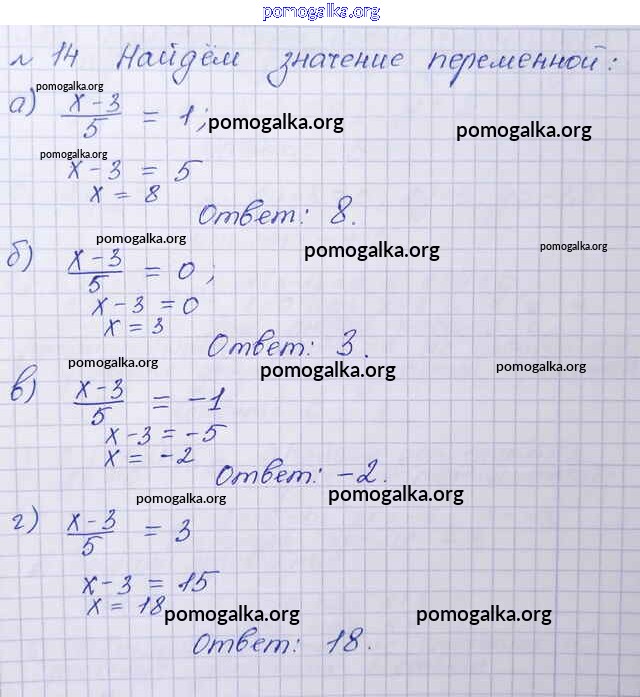 pomogalka.org
№ 14 Найдём значение переменной:
pomogalka.org
а) x-3/5 = 1; pomogalka.org pomogalka.org
pomogalka.org
x-3 = 5
x = 8
Ответ: 8.
pomogalka.org pomogalka.org pomogalka.org
б) x-3/5 = 0;
x-3 = 0
x = 3
Ответ: 3.
pomogalka.org pomogalka.org pomogalka.org
в) x-3/5 = -1
x-3 = -5
x = -2
Ответ: -2.
pomogalka.org pomogalka.org
г) x-3/5 = 3
x-3 = 15
x = 18 pomogalka.org pomogalka.org
Ответ: 18.